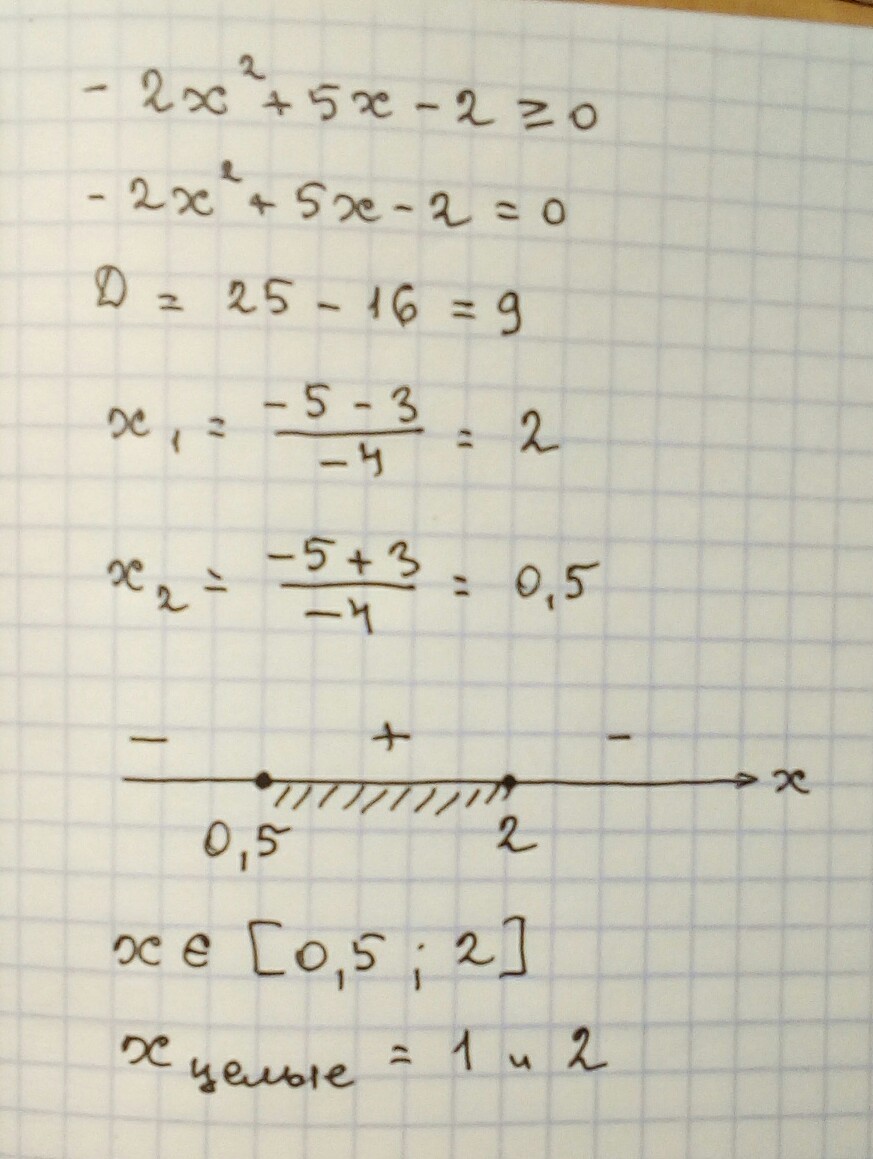 - 2x² + 5x - 2 ≥ 0
- 2x² + 5x - 2 = 0
D = 25 - 16 = 9
x₁ = (-5 - 3)/(-4) = 2
x₂ = (-5 + 3)/(-4) = 0,5
- + -
x
0,5 2
x ∈ [0,5 ; 2]
x целые = 1 и 2